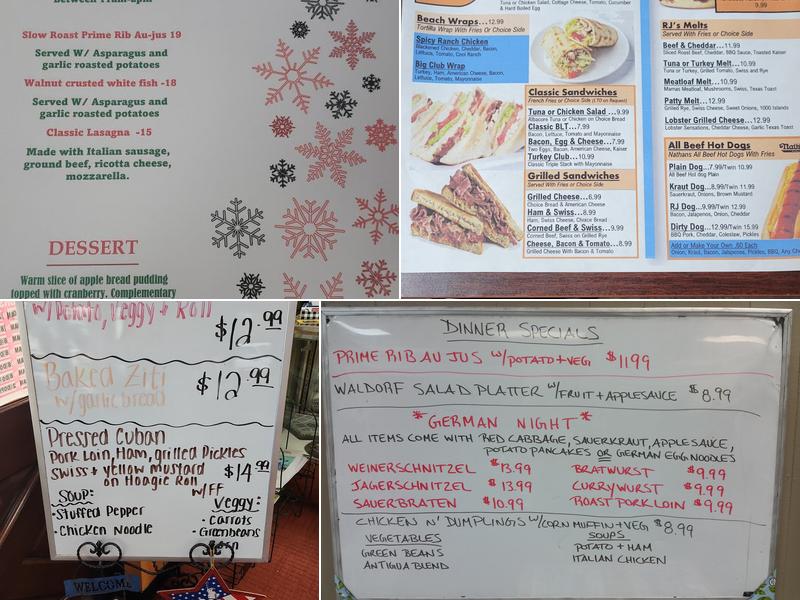 Slow Roast Prime Rib Au-jus 19
Served W/ Asparagus and
garlic roasted potatoes
Walnut crusted white fish -18
Served W/ Asparagus and
garlic roasted potatoes
Classic Lasagna -15
Made with Italian sausage,
ground beef, ricotta cheese,
mozzarella.
DESSERT
Warm slice of apple bread pudding
topped with cranberry. Complementary
& Hard Boiled Egg
Beach Wraps...12.99
Tortilla Wrap With Fries Or Choice Side
Spicy Ranch Chicken
Blackened Chicken, Cheddar, Bacon,
Lettuce, Tomato, Cool Ranch
Big Club Wrap
Turkey, Ham, American Cheese, Bacon,
Lettuce, Tomato, Mayonnaise
Classic Sandwiches
French Fries or Choice Side (LTO on Request)
Tuna or Chicken Salad ...9.99
Albacore Tuna or Chicken on Choice Bread
Classic BLT...7.99
Bacon, Lettuce, Tomato and Mayonnaise
Bacon, Egg & Cheese...7.99
Two Eggs, Bacon, American Cheese, Kaiser
Turkey Club...10.99
Classic Triple Stack with Mayonnaise
Grilled Sandwiches
Served With Fries or Choice Side
Grilled Cheese...6.99
Choice Bread & American Cheese
Ham & Swiss...8.99
Ham, Swiss Cheese, Choice Bread
Corned Beef & Swiss...9.99
Corned Beef, Swiss on Grilled Rye
Cheese, Bacon & Tomato...8.99
Grilled Cheese With Bacon & Tomato
9.99
RJ's Melts
Served With Fries or Choice Side
Beef & Cheddar...11.99
Sliced Roast Beef, Cheddar, BBQ Sauce, Toasted Kaiser
Tuna or Turkey Melt...10.99
Tuna or Turkey, Grilled Tomato, Swiss and Rye
Meatloaf Melt...10.99
Mamas Meatloaf, Mushrooms, Swiss, Texas Toast
Patty Melt...12.99
Grilled Rye, Swiss Cheese, Sweet Onions, 1000 Islands
Lobster Grilled Cheese...12.99
Lobster Sensations, Cheddar Cheese, Garlic Texas Toast
All Beef Hot Dogs
Nathans All Beef Hot Dogs With Fries
Plain Dog...7.99/Twin 10.99
All Beef Hot dog Plain
Kraut Dog...8.99/Twin 11.99
Sauerkraut, Onions, Brown Mustard
RJ Dog...9.99/Twin 12.99
Bacon, Jalapenos, Onion, Cheddar
Dirty Dog...12.99/Twin 15.99
BBQ Pork, Cheddar, Coleslaw, Pickles
Add or Make Your Own .60 Each
Onion, Kraut, Bacon, Jalapenos, Pickles, BBQ, Any Ch
w/Potato, Veggy + Roll
$12.99
Baked Ziti
w/garlic bread
$12.99
Pressed Cuban
Pork Loin, Ham, grilled Pickles
Swiss + yellow mustard
on Hoagie Roll
$14.99
w/FF
Soup:
•Stuffed Pepper
•Chicken Noodle
Veggy:
•Carrots
•Greenbeans
Corn
WELCOME
DINNER SPECIALS
PRIME RIB AU JUS W/POTATO+VEG $11.99
WALDORF SALAD PLATTER W/FRUIT+APPLESAUCE $8.99
*GERMAN NIGHT*
ALL ITEMS COME WITH RED CABBAGE, SAUERKRAUT, APPLESAUCE,
POTATO PANCAKES OR GERMAN EGG NOODLES
WEINERSCHNITZEL $13.99 BRATWURST $9.99
JAGERSCHNITZEL $13.99 CURRYWURST $9.99
SAUERBRATEN $10.99 ROAST PORK LOIN $9.99
CHICKEN N' DUMPLINGS W/CORN MUFFIN+VEG $8.99
VEGETABLES
GREEN BEANS
ANTIGUA BLEND
SOUPS
POTATO + HAM
ITALIAN CHICKEN